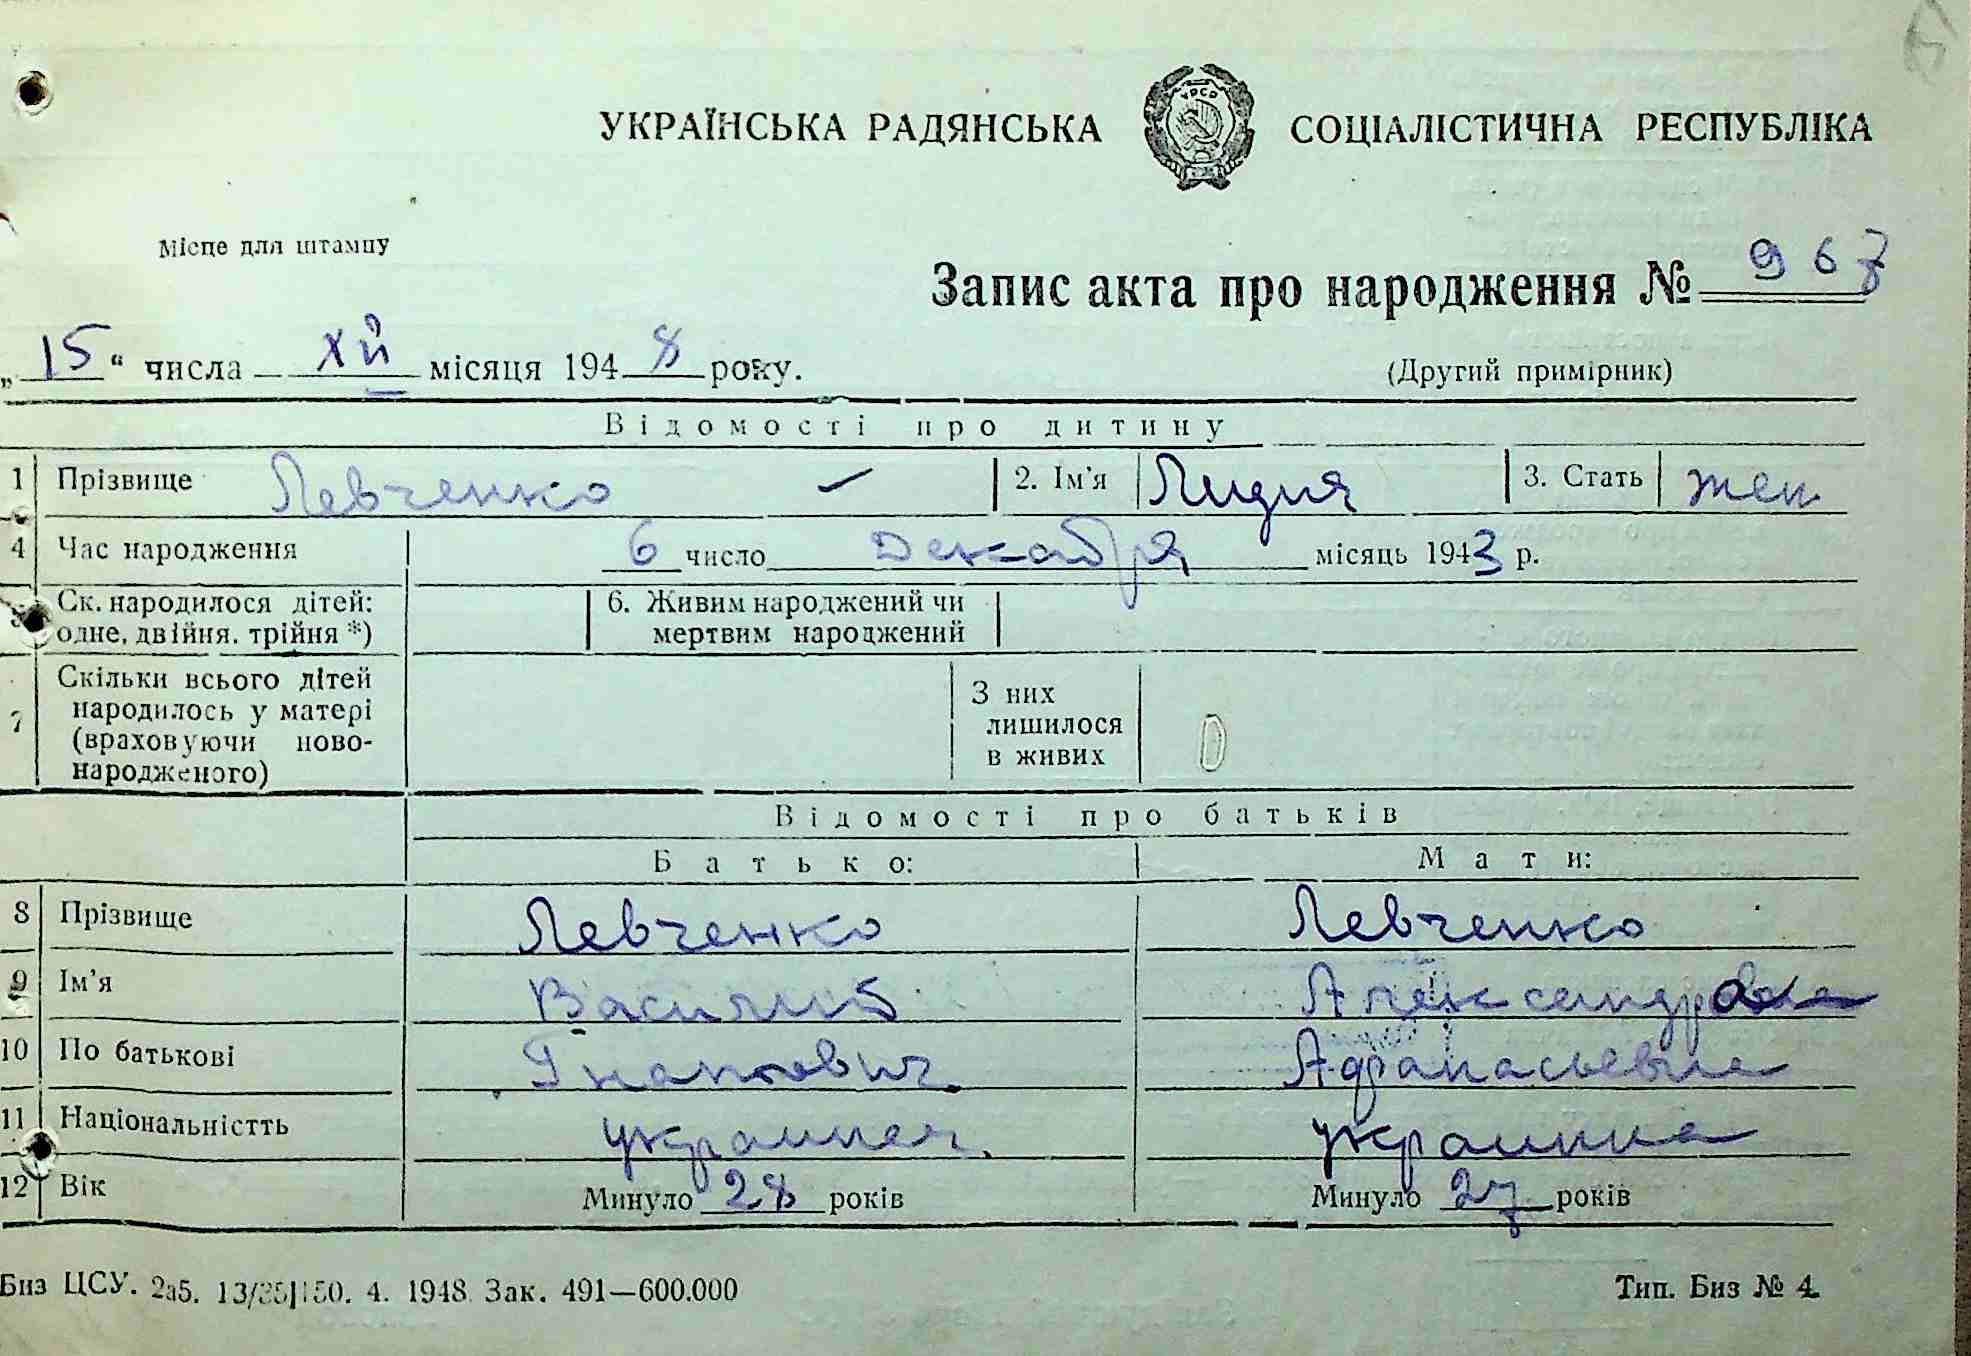 УКРАЇНСЬКА РАДЯНСЬКА СОЦІАЛІСТИЧНА РЕСПУБЛІКА
УРСР
Місце для штампу
Запис акта про народження № 967
„15“ числа XII місяця 1948 року.
(Другий примірник)
Відомості про дитину
1 Прізвище Левченко 2. Ім'я Лидия 3. Стать жен
4 Час народження 6 число Декабря місяць 1943 р.
5 Ск. народилося дітей: одне, двійня, трійня *) 6. Живим народжений чи мертвим народжений
7 Скільки всього дітей народилось у матері (враховуючи новонародженого) З них лишилося в живих
Відомості про батьків
Батько: Мати:
8 Прізвище Левченко Левченко
9 Ім'я Василий Александра
10 По батькові Гнатович Афанасьевна
11 Національністть украинец украинка
12 Вік Минуло 28 років Минуло 27 років
Биз ЦСУ. 2а5. 4. 1948 Зак. 491—600.000
Тип. Биз № 4.